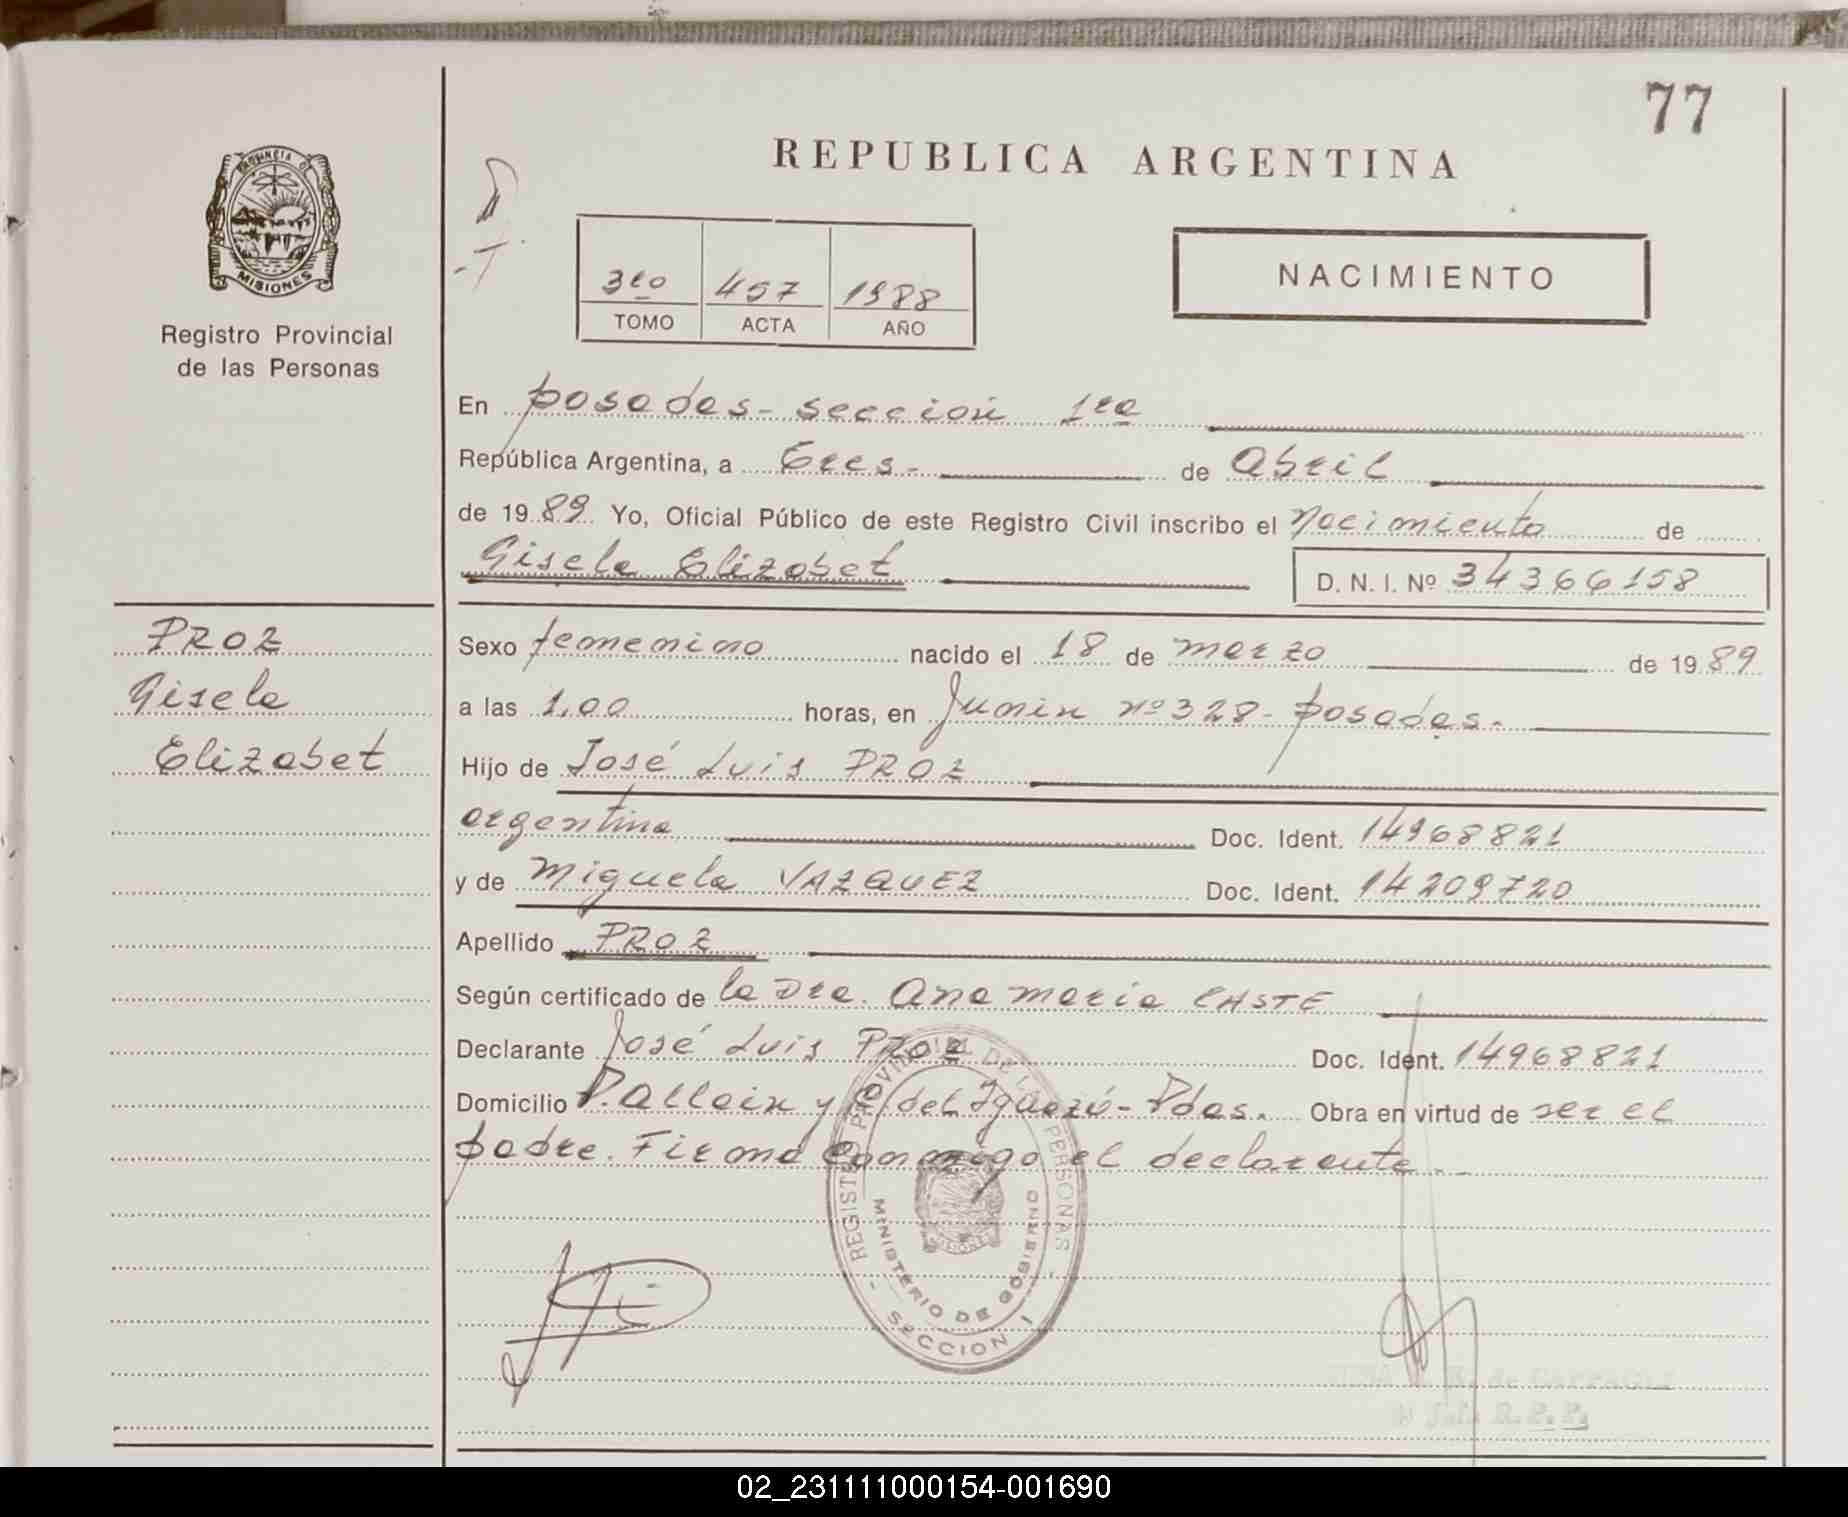 77
REPUBLICA ARGENTINA
PROVINCIA DE
MISIONES
Registro Provincial
de las Personas
3ro 457 1988
TOMO ACTA AÑO
NACIMIENTO
En posadas - seccion 1ra
República Argentina, a tres - de abril
de 1989 Yo, Oficial Público de este Registro Civil inscribo el nacimiento de
Gisela Elizabet D. N. I. Nº 34366158
PROZ
Gisela
Elizabet
Sexo femenino nacido el 18 de marzo de 1989
a las 1,00 horas, en Junin nº 328 - posadas.
Hijo de José Luis PROZ
argentina Doc. Ident. 14968821
y de Miguela VAZQUEZ Doc. Ident. 14209720
Apellido PROZ
Según certificado de la Dra. Ana maria CASTE
Declarante José Luis PROZ Doc. Ident. 14968821
Domicilio P. Allein y C/del Iguazú - Pdas. Obra en virtud de ser el
padre. Firma conmigo el declarante.
REGISTRO PROVINCIAL DE LAS PERSONAS
MINISTERIO DE GOBIERNO
SECCION 1
MISIONES
de
J.I. R.P.P.
02_231111000154-001690